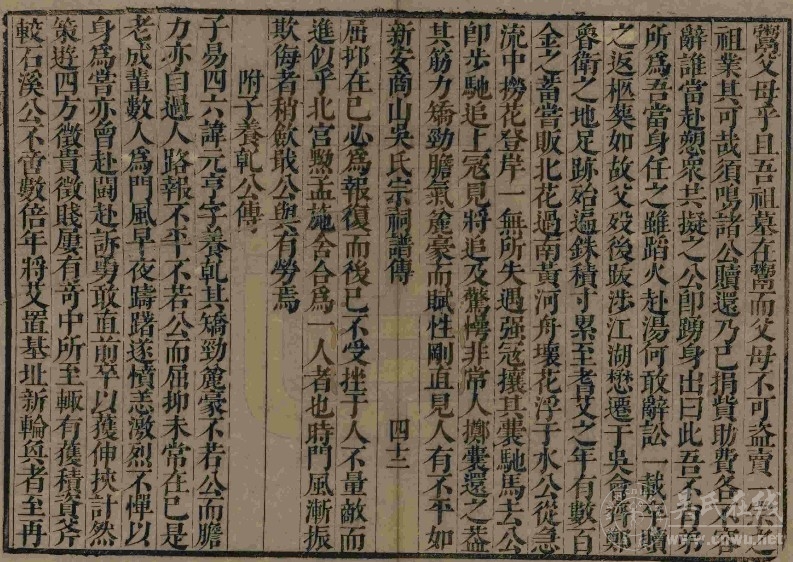 鬻父母乎且吾祖墓在鬻而父母不可盜賣一木之
祖業其可哉須鳴諸公贖還乃已捐貲助費各不容
辭誰當赴愬衆共擬之公卽踴身出曰此吾不肖弟
所爲吾當身任之雖蹈火赴湯何敢辭訟一載卒贖
之返柩葬如故父歿後跋涉江湖懋遷于吳會齊鄭
魯衛之地足跡始遍銖積寸累至耆艾之年有數百
金之蓄嘗販北花過南黃河舟壞花浮于水公從急
流中撈花登岸一無所失遇強冦攘其囊馳馬去公
卽步馳追上冦見將追及驚愕非常人擲囊還之蓋
其筋力矯勁膽氣麄豪而賦性剛直見人有不平如
新安商山吳氏宗祠譜傳
四十二
屈抑在己必爲報復而後已不受挫于人不量敵而
進似乎北宮黝孟施舍合爲一人者也時門風漸振
欺侮者稍歛戢公與有勞焉
附子養乾公傳
子易四六諱元亨字養乾其矯勁麄豪不若公而膽
力亦自過人路報不平不若公而屈抑未常在己是
老成輩數人爲門風早夜躊躇遂憤恙激烈不憚以
身爲嘗亦曾赴鬪赴訴勇敢直前卒以獲伸挾計然
策遊四方徵貴徵賤屢有奇中所至輙有獲積資斧
較石溪公不啻數倍年將艾置基址新輪奐者至再
吳氏在线
www.cnwu.net